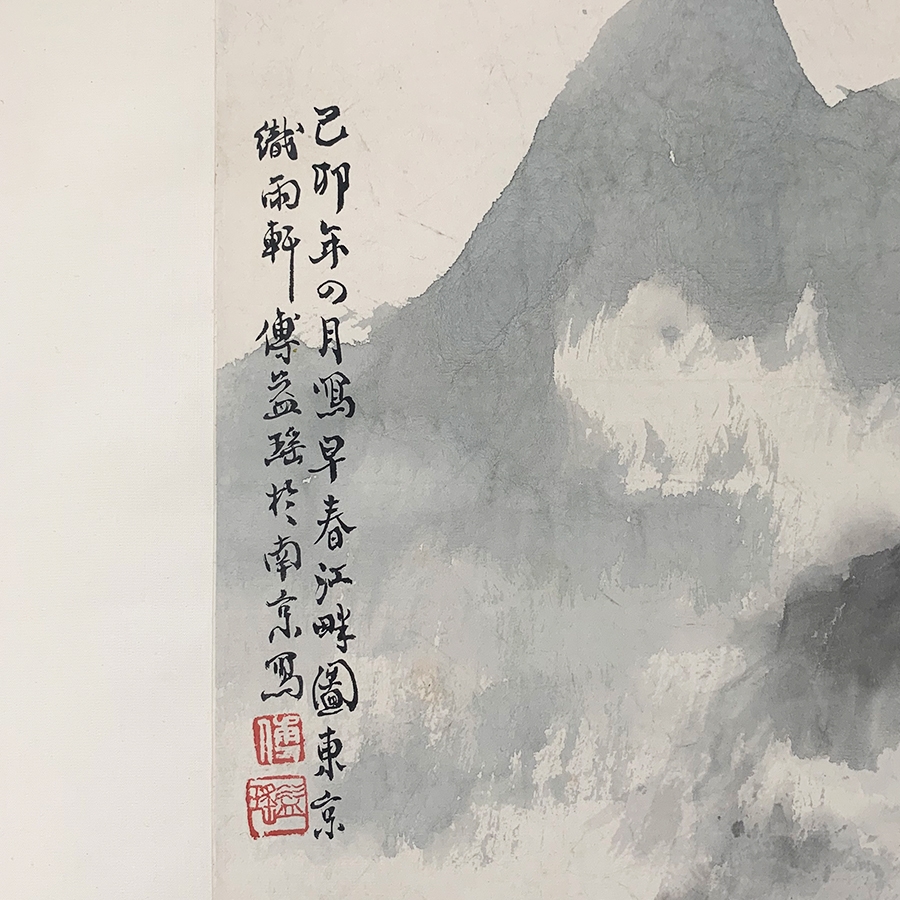 己卯年の月寫早春江畔圖東京
織雨軒傅益瑤於南京寫
傅
益瑤